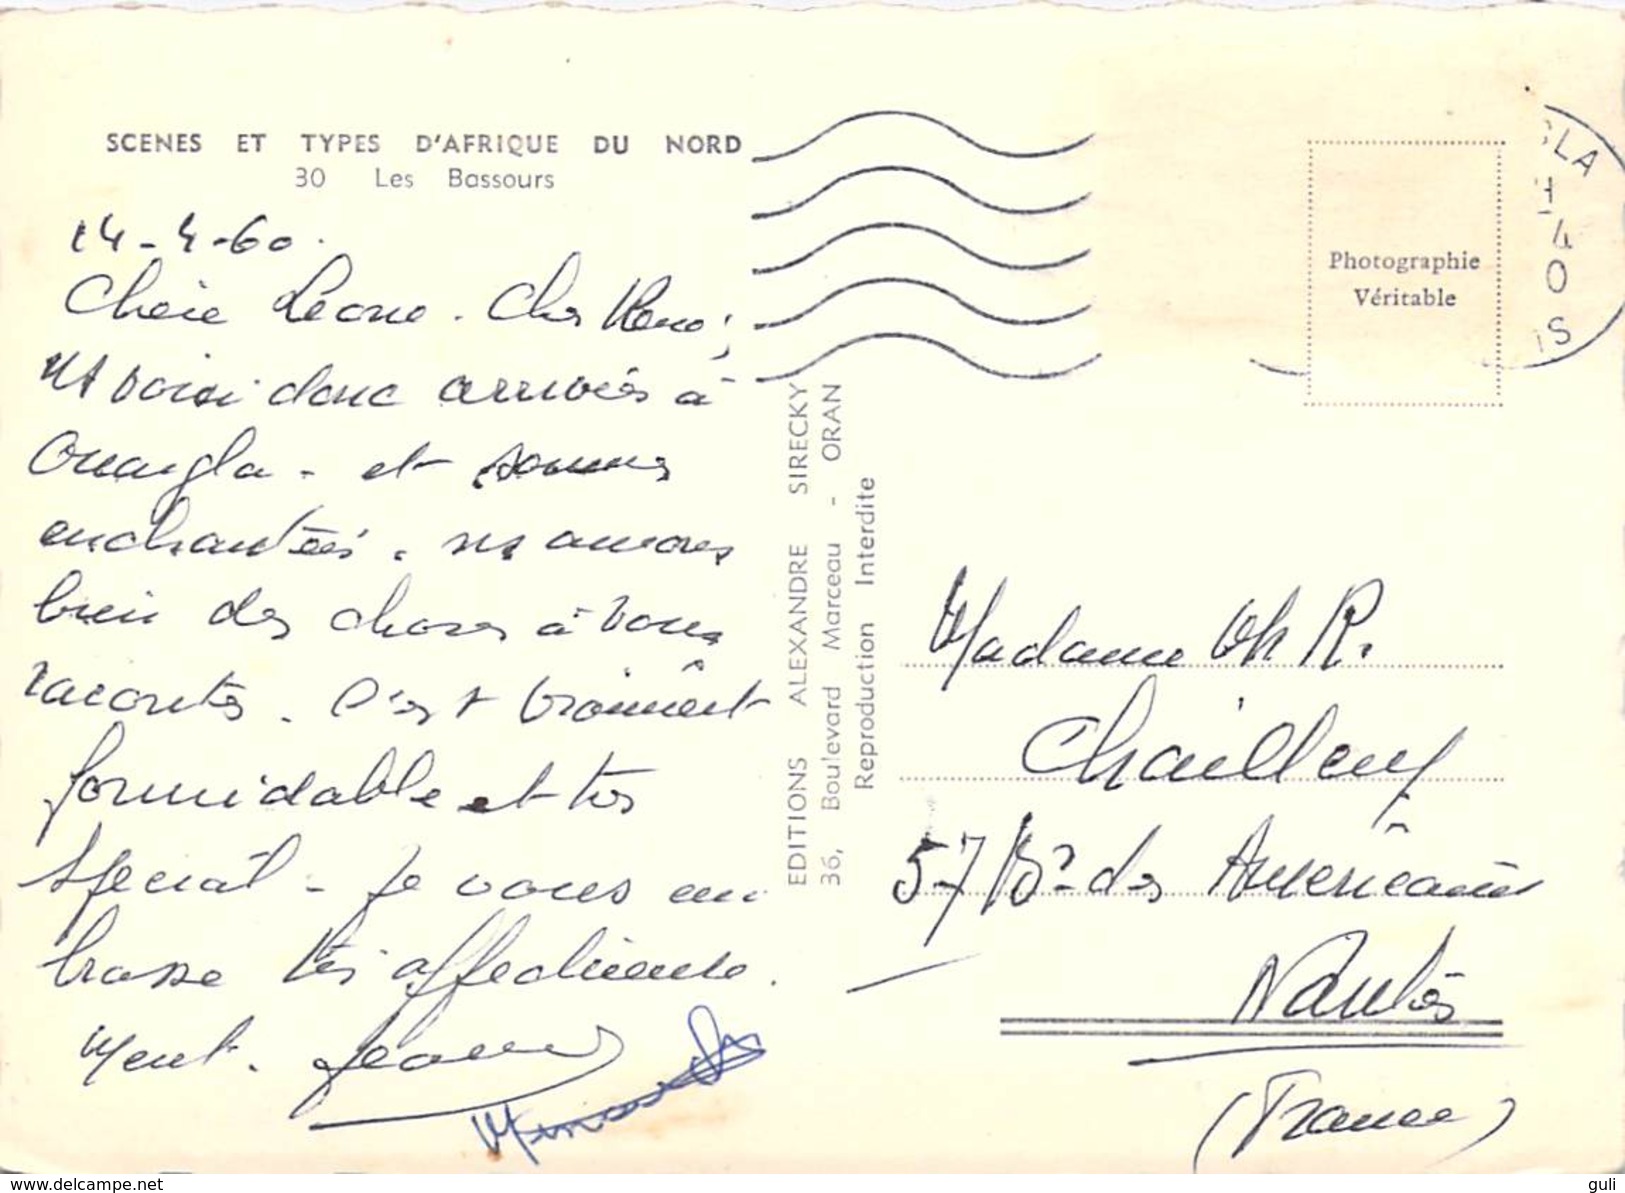 SCENES ET TYPES D'AFRIQUE DU NORD
30 Les Bassours
14-4-60.
Chère Léone. Cher René,
ns voici donc arrivées à
Ouargla - et sommes
enchantées. ns aurons
bien des choses à vous
raconter. C'est vraiment
formidable et très
spécial - Je vous em
brasse très affectueuse
ment. Jeanne
EDITIONS ALEXANDRE SIRECKY
36, Boulevard Marceau - ORAN
Reproduction Interdite
Photographie
Véritable
GLA
4
0
IS
Madame R.
Chailleux
57 Bd des Américains
Nantes
(France)
delcampe.net
guli